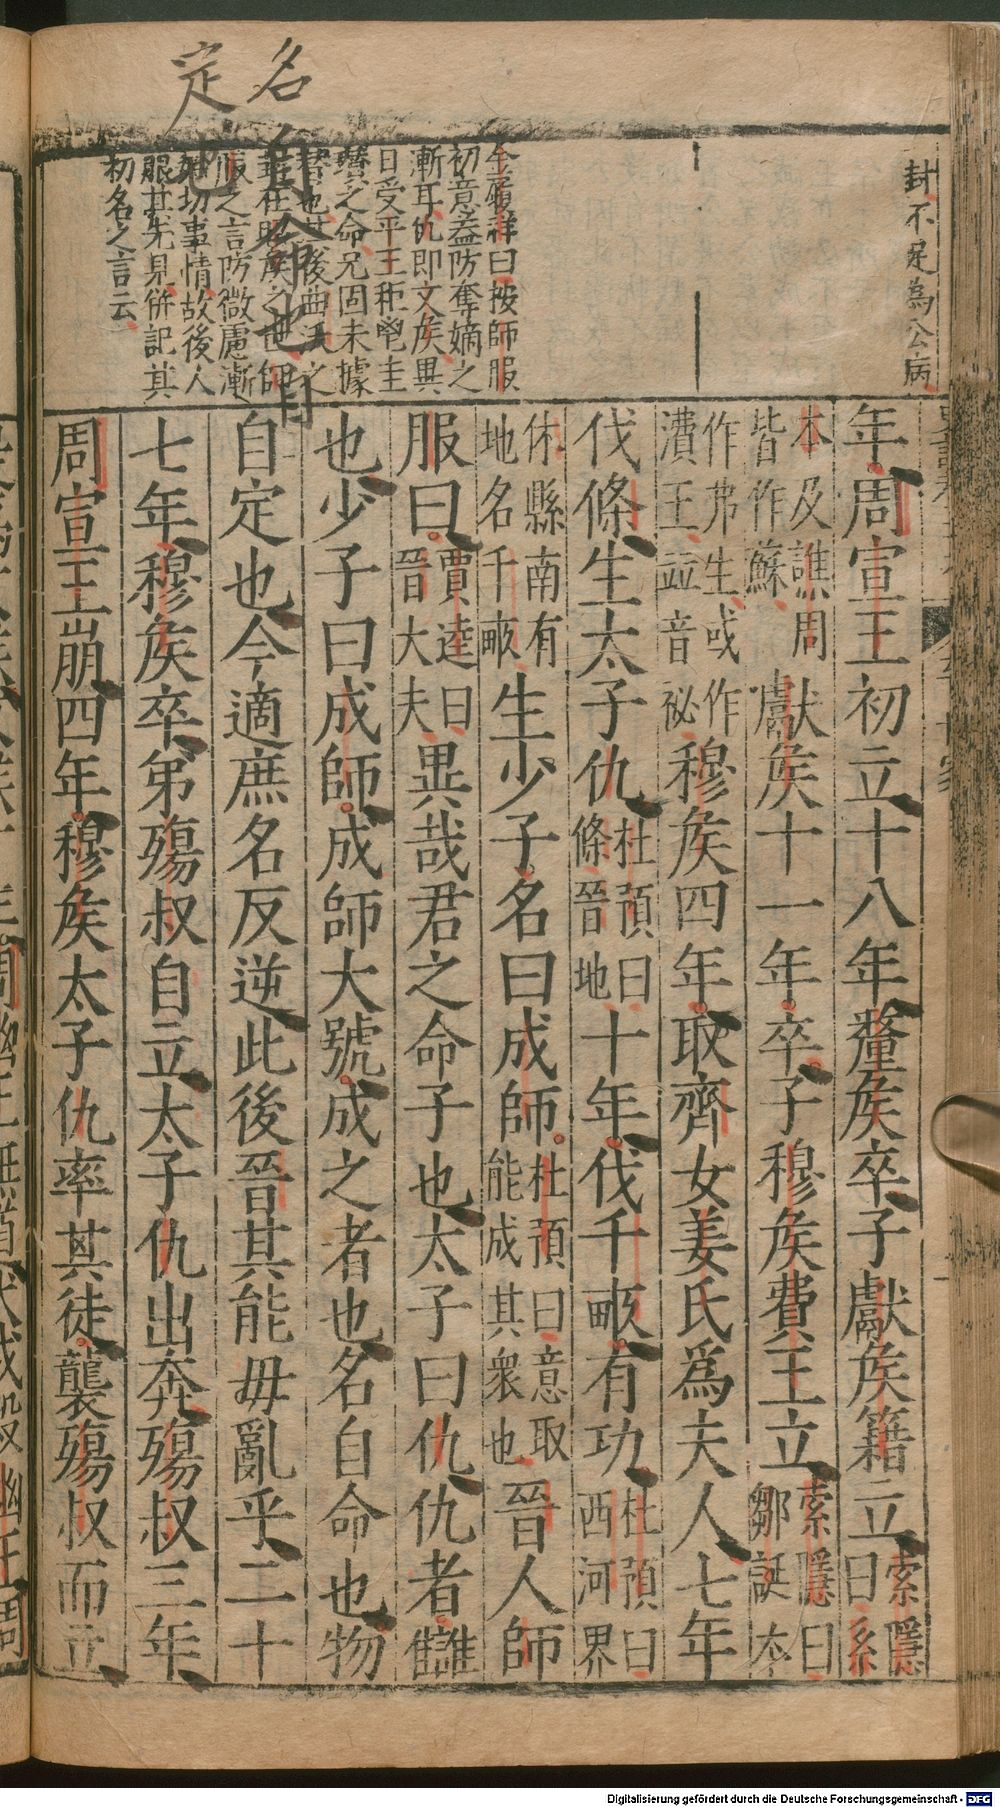 名
定
封不足為公病
金履祥曰按師服
初意蓋防奪嫡之
漸耳仇即文矦異
日受平王秬鬯圭
瓚之命兄固未據
替也其後曲沃之
矦之世師
服之言防微慮漸
切事情故後人
服其先見併記其
初名之言云
自命也自
年周宣王初立十八年釐矦卒子獻矦籍立索隱曰系
本及譙周皆作蘇獻矦十一年卒子穆矦費王立索隱曰鄒誕本
作弗生或作㵒王並音祕穆矦四年取齊女姜氏爲夫人七年
伐條生太子仇杜預曰條晉地十年伐千畝有功杜預曰西河界
休縣南有地名千畝生少子名曰成師杜預曰意取能成其衆也晉人師
服曰賈逵曰晉大夫異哉君之命子也太子曰仇仇者讎
也少子曰成師成師大號成之者也名自命也物
自定也今適庶名反逆此後晉其能毋亂乎二十
七年穆矦卒弟殤叔自立太子仇出奔殤叔三年
周宣王崩四年穆矦太子仇率其徒襲殤叔而立
Digitalisierung gefördert durch die Deutsche Forschungsgemeinschaft - DFG